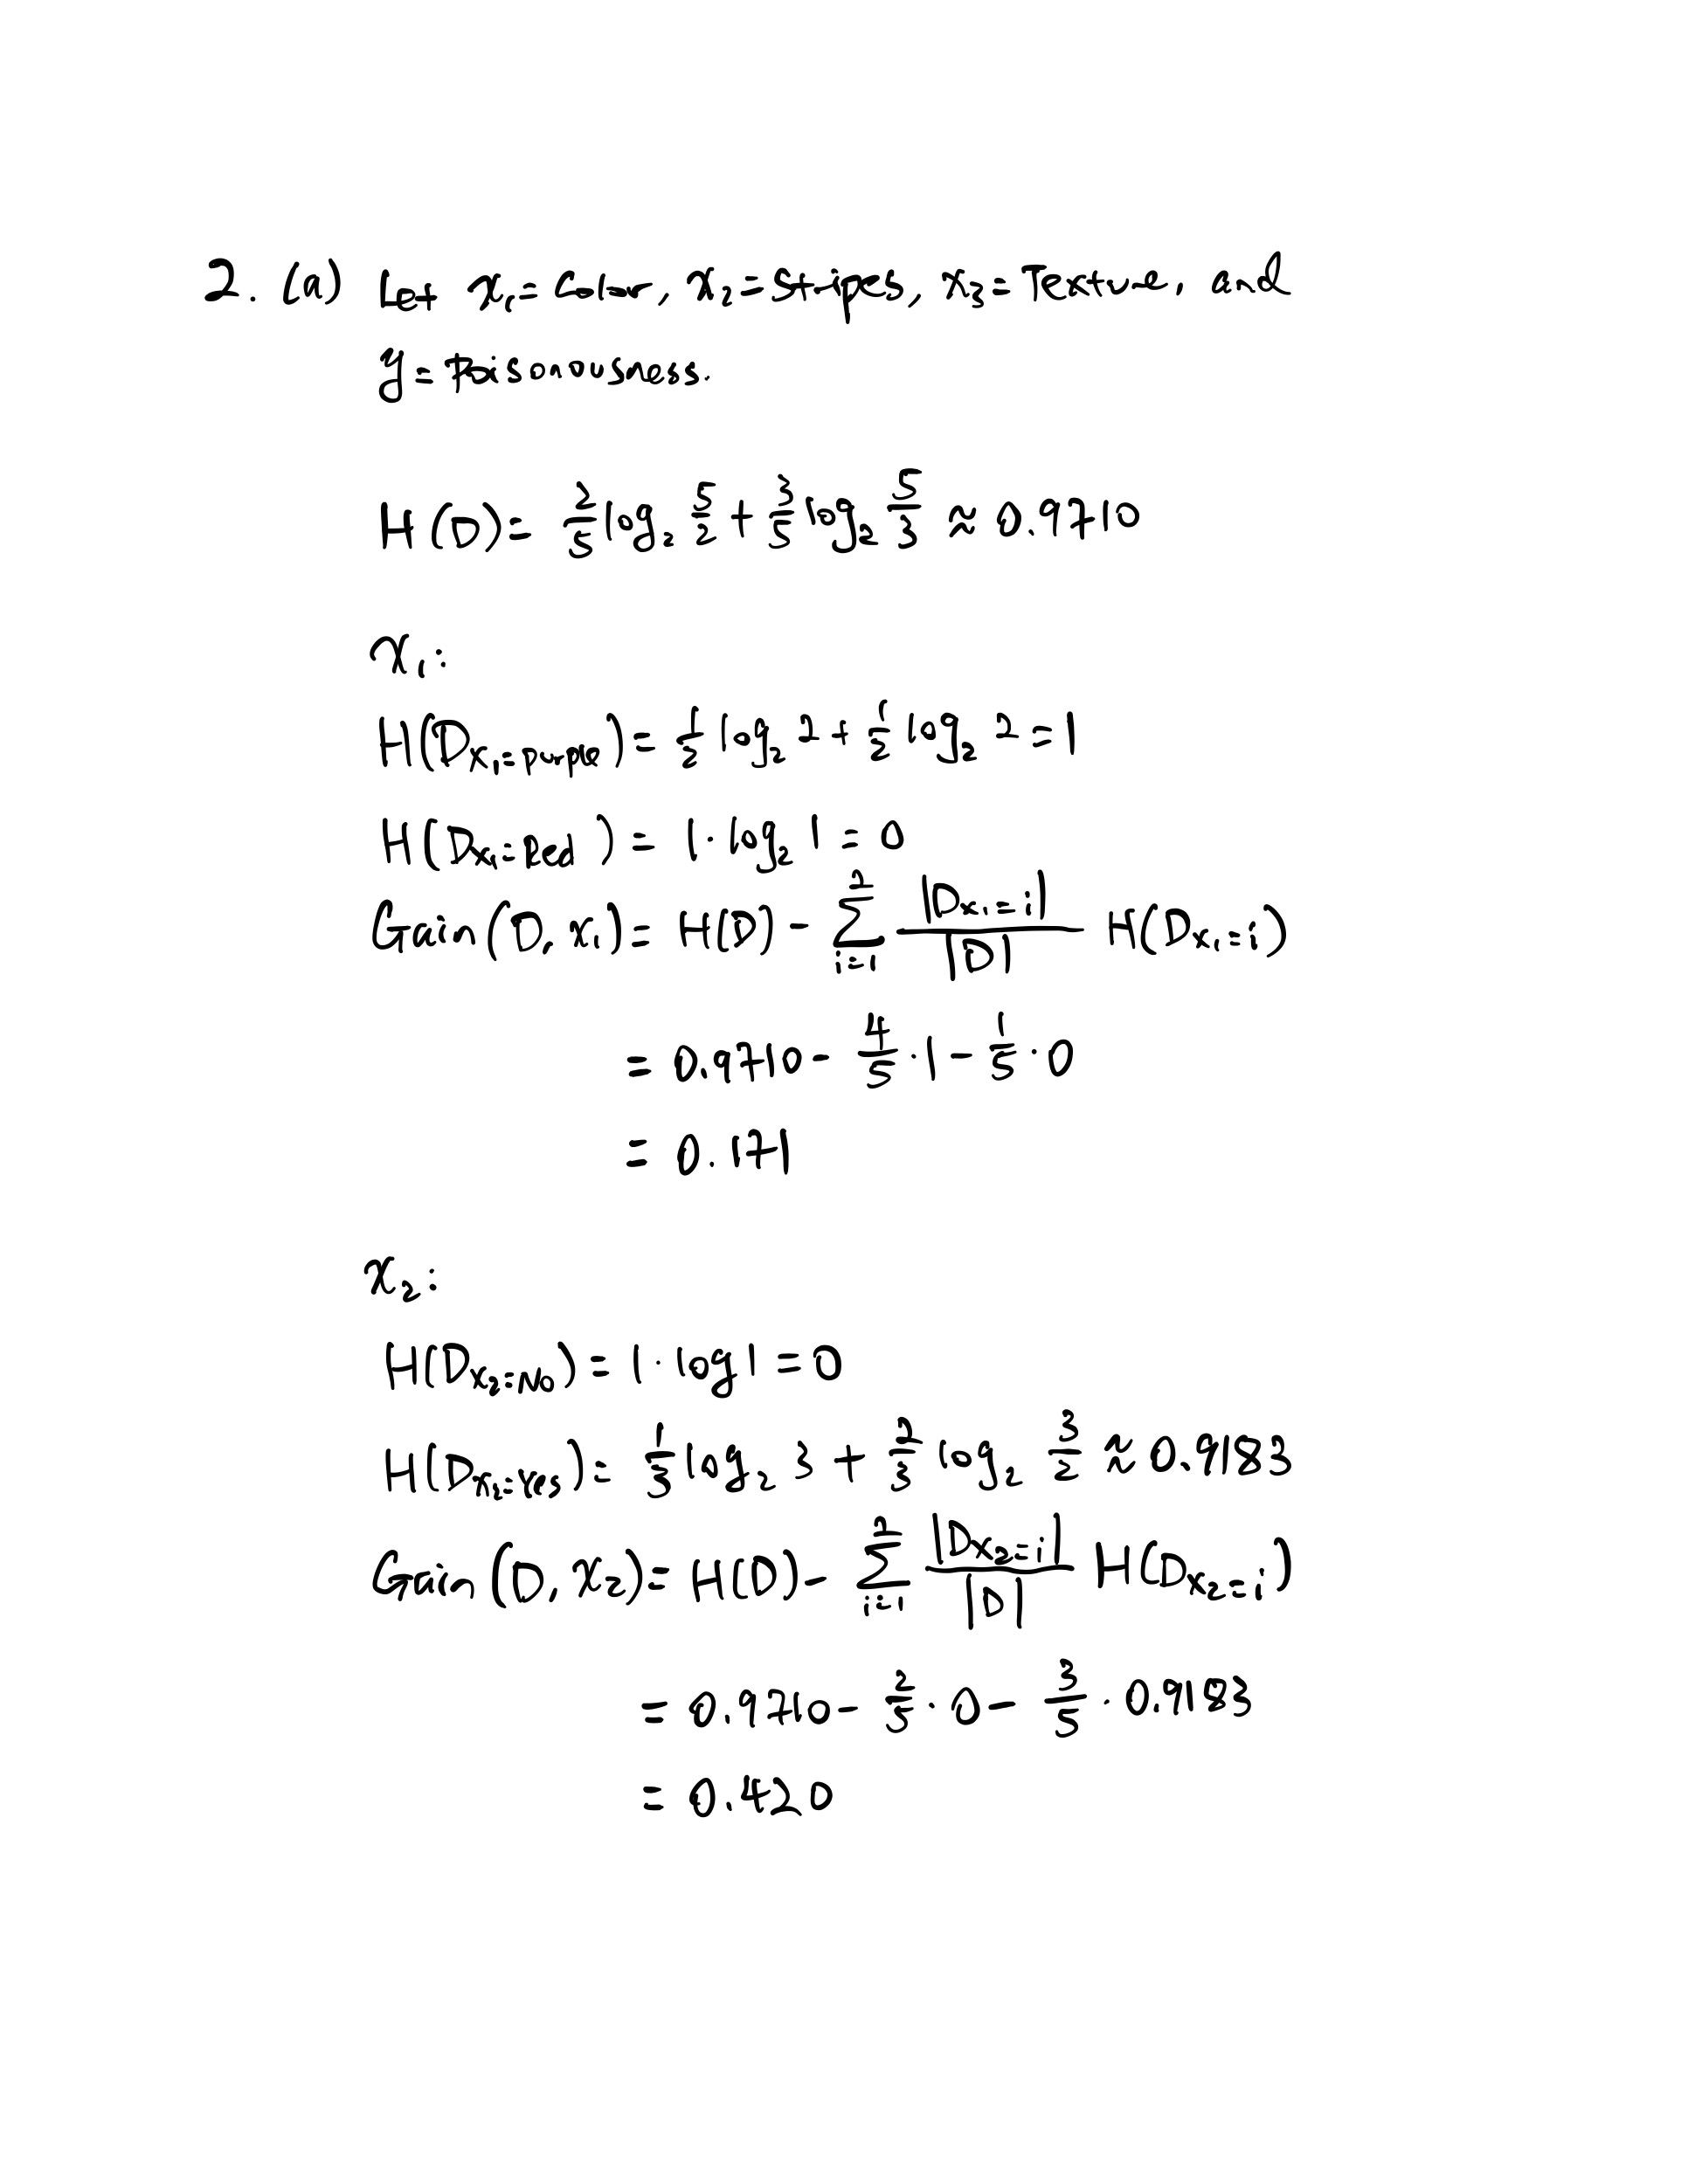 2. (a) Let x₁ = Color, x₂ = Stripes, x₃ = Texture, and
y = Poisonousness.
H(D) = 2/5 log₂ 5/2 + 3/5 log₂ 5/3 ≈ 0.9710
x₁:
H(D_{x₁=purple}) = 1/2 log₂ 2 + 1/2 log₂ 2 = 1
H(D_{x₁=Red}) = 1 · log₂ 1 = 0
Gain(D, x₁) = H(D) - ∑_{i=1}^{2} |D_{x₁=i}|/|D| H(D_{x₁=i})
= 0.9710 - 4/5 · 1 - 1/5 · 0
= 0.171
x₂:
H(D_{x₂=No}) = 1 · log 1 = 0
H(D_{x₂=Yes}) = 1/3 log₂ 3 + 2/3 log₂ 3/2 ≈ 0.9183
Gain(D, x₂) = H(D) - ∑_{i=1}^{2} |D_{x₂=i}|/|D| H(D_{x₂=i})
= 0.9710 - 2/5 · 0 - 3/5 · 0.9183
= 0.420